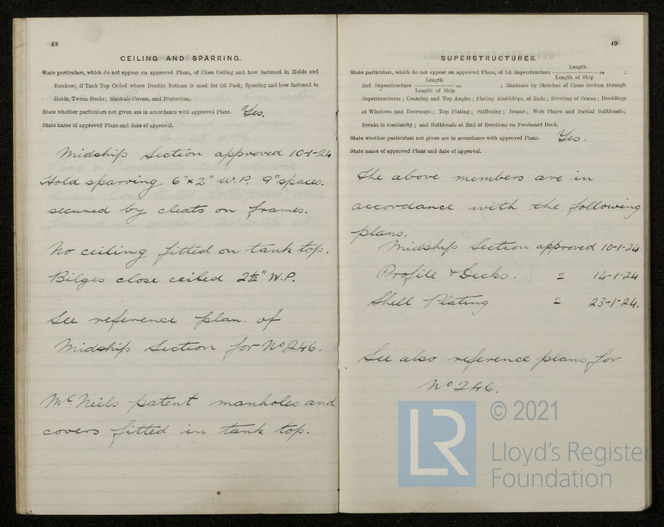 48
CEILING AND SPARRING.
State particulars, which do not appear on approved Plans, of Close Ceiling and how fastened in Holds and
Bunkers; if Tank Top Ceiled where Double Bottom is used for Oil Fuel; Sparring and how fastened in
Holds, Tween Decks; Manhole Covers, and Protection.
State whether particulars not given are in accordance with approved Plans. Yes.
State name of approved Plans and date of approval.
Midship Section approved 10-1-24
Hold sparring 6" x 2" W.P. 9" spaces.
secured by cleats on frames.
No ceiling fitted on tank top.
Bilges close ceiled 2½" W.P.
See reference plan of
Midship Section for No 246.
McNeils patent manholes and
covers fitted in tank top.
49
SUPERSTRUCTURES.
State particulars, which do not appear on approved Plans, of 1st Superstructure Length / Length of Ship = ;
2nd Superstructure Length / Length of Ship = ; illustrate by Sketches of Cross Section through
Superstructures; Coaming and Top Angles; Plating Amidships, at Ends; Riveting of Seams; Doublings
at Windows and Doorways; Top Plating; Stiffening; Beams; Web Plates and Partial Bulkheads;
Breaks in continuity; and Bulkheads at End of Erections on Freeboard Deck.
State whether particulars not given are in accordance with approved Plans. Yes.
State name of approved Plans and date of approval.
The above members are in
accordance with the following
plans.
Midship Section approved 10-1-24
Profile & Decks. " 14-1-24
Shell Plating " 23-1-24.
See also reference plans for
No 246.
LR
© 2021
Lloyd's Register
Foundation